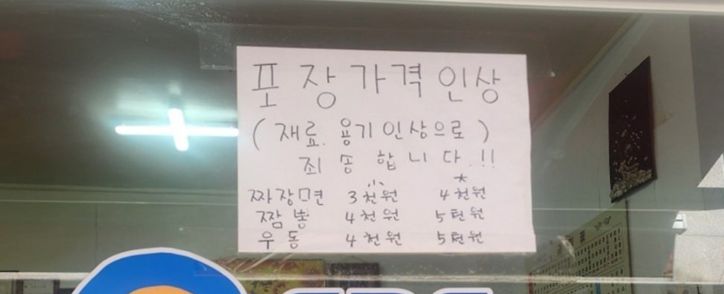 포장가격인상
(재료.용기인상으로)
죄송합니다.!!
짜장면 3천원 4천원
짬뽕 4천원 5천원
우동 4천원 5천원